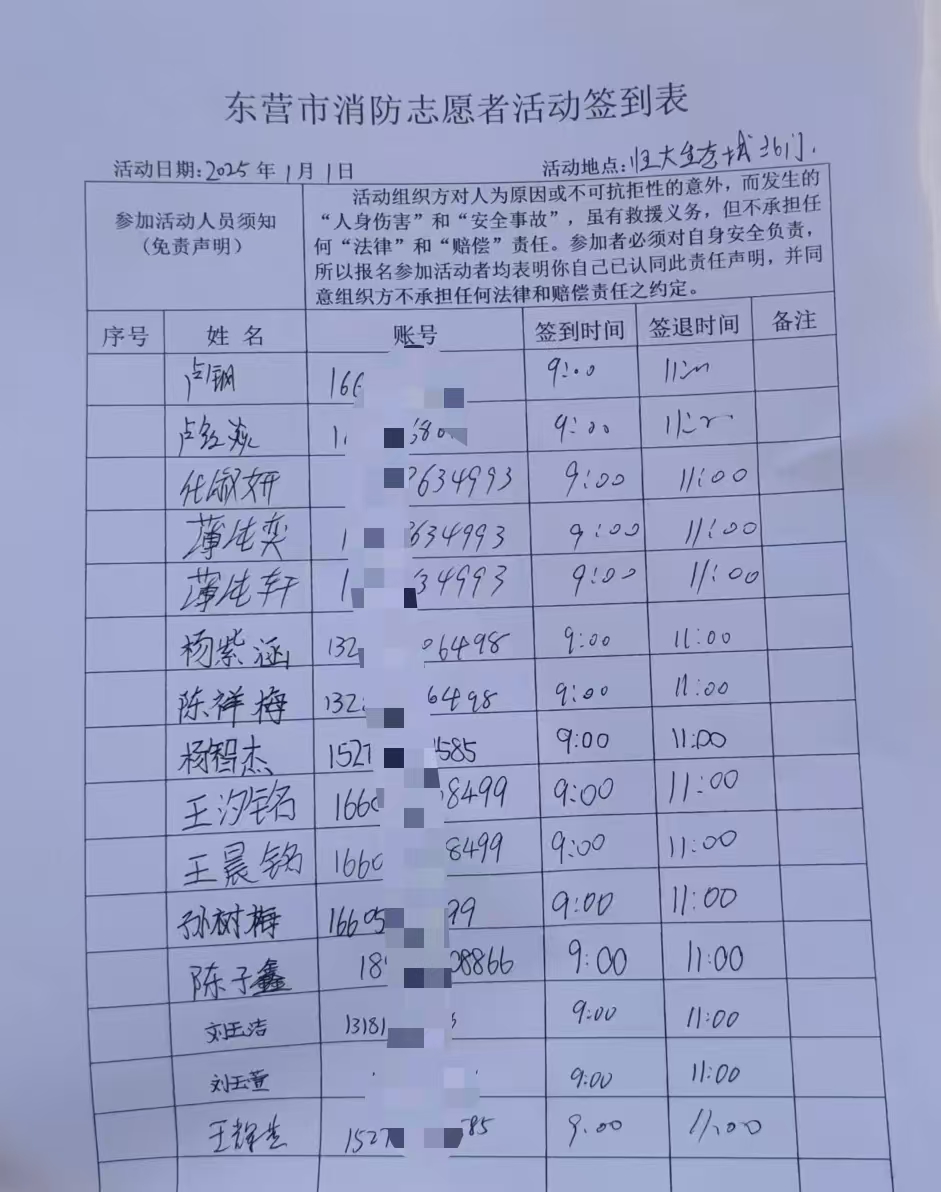 东营市消防志愿者活动签到表
活动日期:2025年1月1日 活动地点:恒大生态城北门.
参加活动人员须知
(免责声明)
活动组织方对人为原因或不可抗拒性的意外,而发生的
“人身伤害”和“安全事故”,虽有救援义务,但不承担任
何“法律”和“赔偿”责任。参加者必须对自身安全负责,
所以报名参加活动者均表明你自己已认同此责任声明,并同
意组织方不承担任何法律和赔偿责任之约定。
序号 姓名 账号 签到时间 签退时间 备注
卢钢 166 9:00 11:00
卢红 9:00 11:00
任淑妍 634993 9:00 11:00
薄纯奕 1 634993 9:00 11:00
薄纯轩 1 34993 9:00 11:00
杨紫涵 132 06498 9:00 11:00
陈祥梅 132 6498 9:00 11:00
杨智杰 1527 585 9:00 11:00
王汐铭 166 8499 9:00 11:00
王晨铭 166 8499 9:00 11:00
孙树梅 16605 99 9:00 11:00
陈子鑫 18 08866 9:00 11:00
刘玉洁 13181 9:00 11:00
刘玉萱 9:00 11:00
王辉 1527 85 9:00 11:00